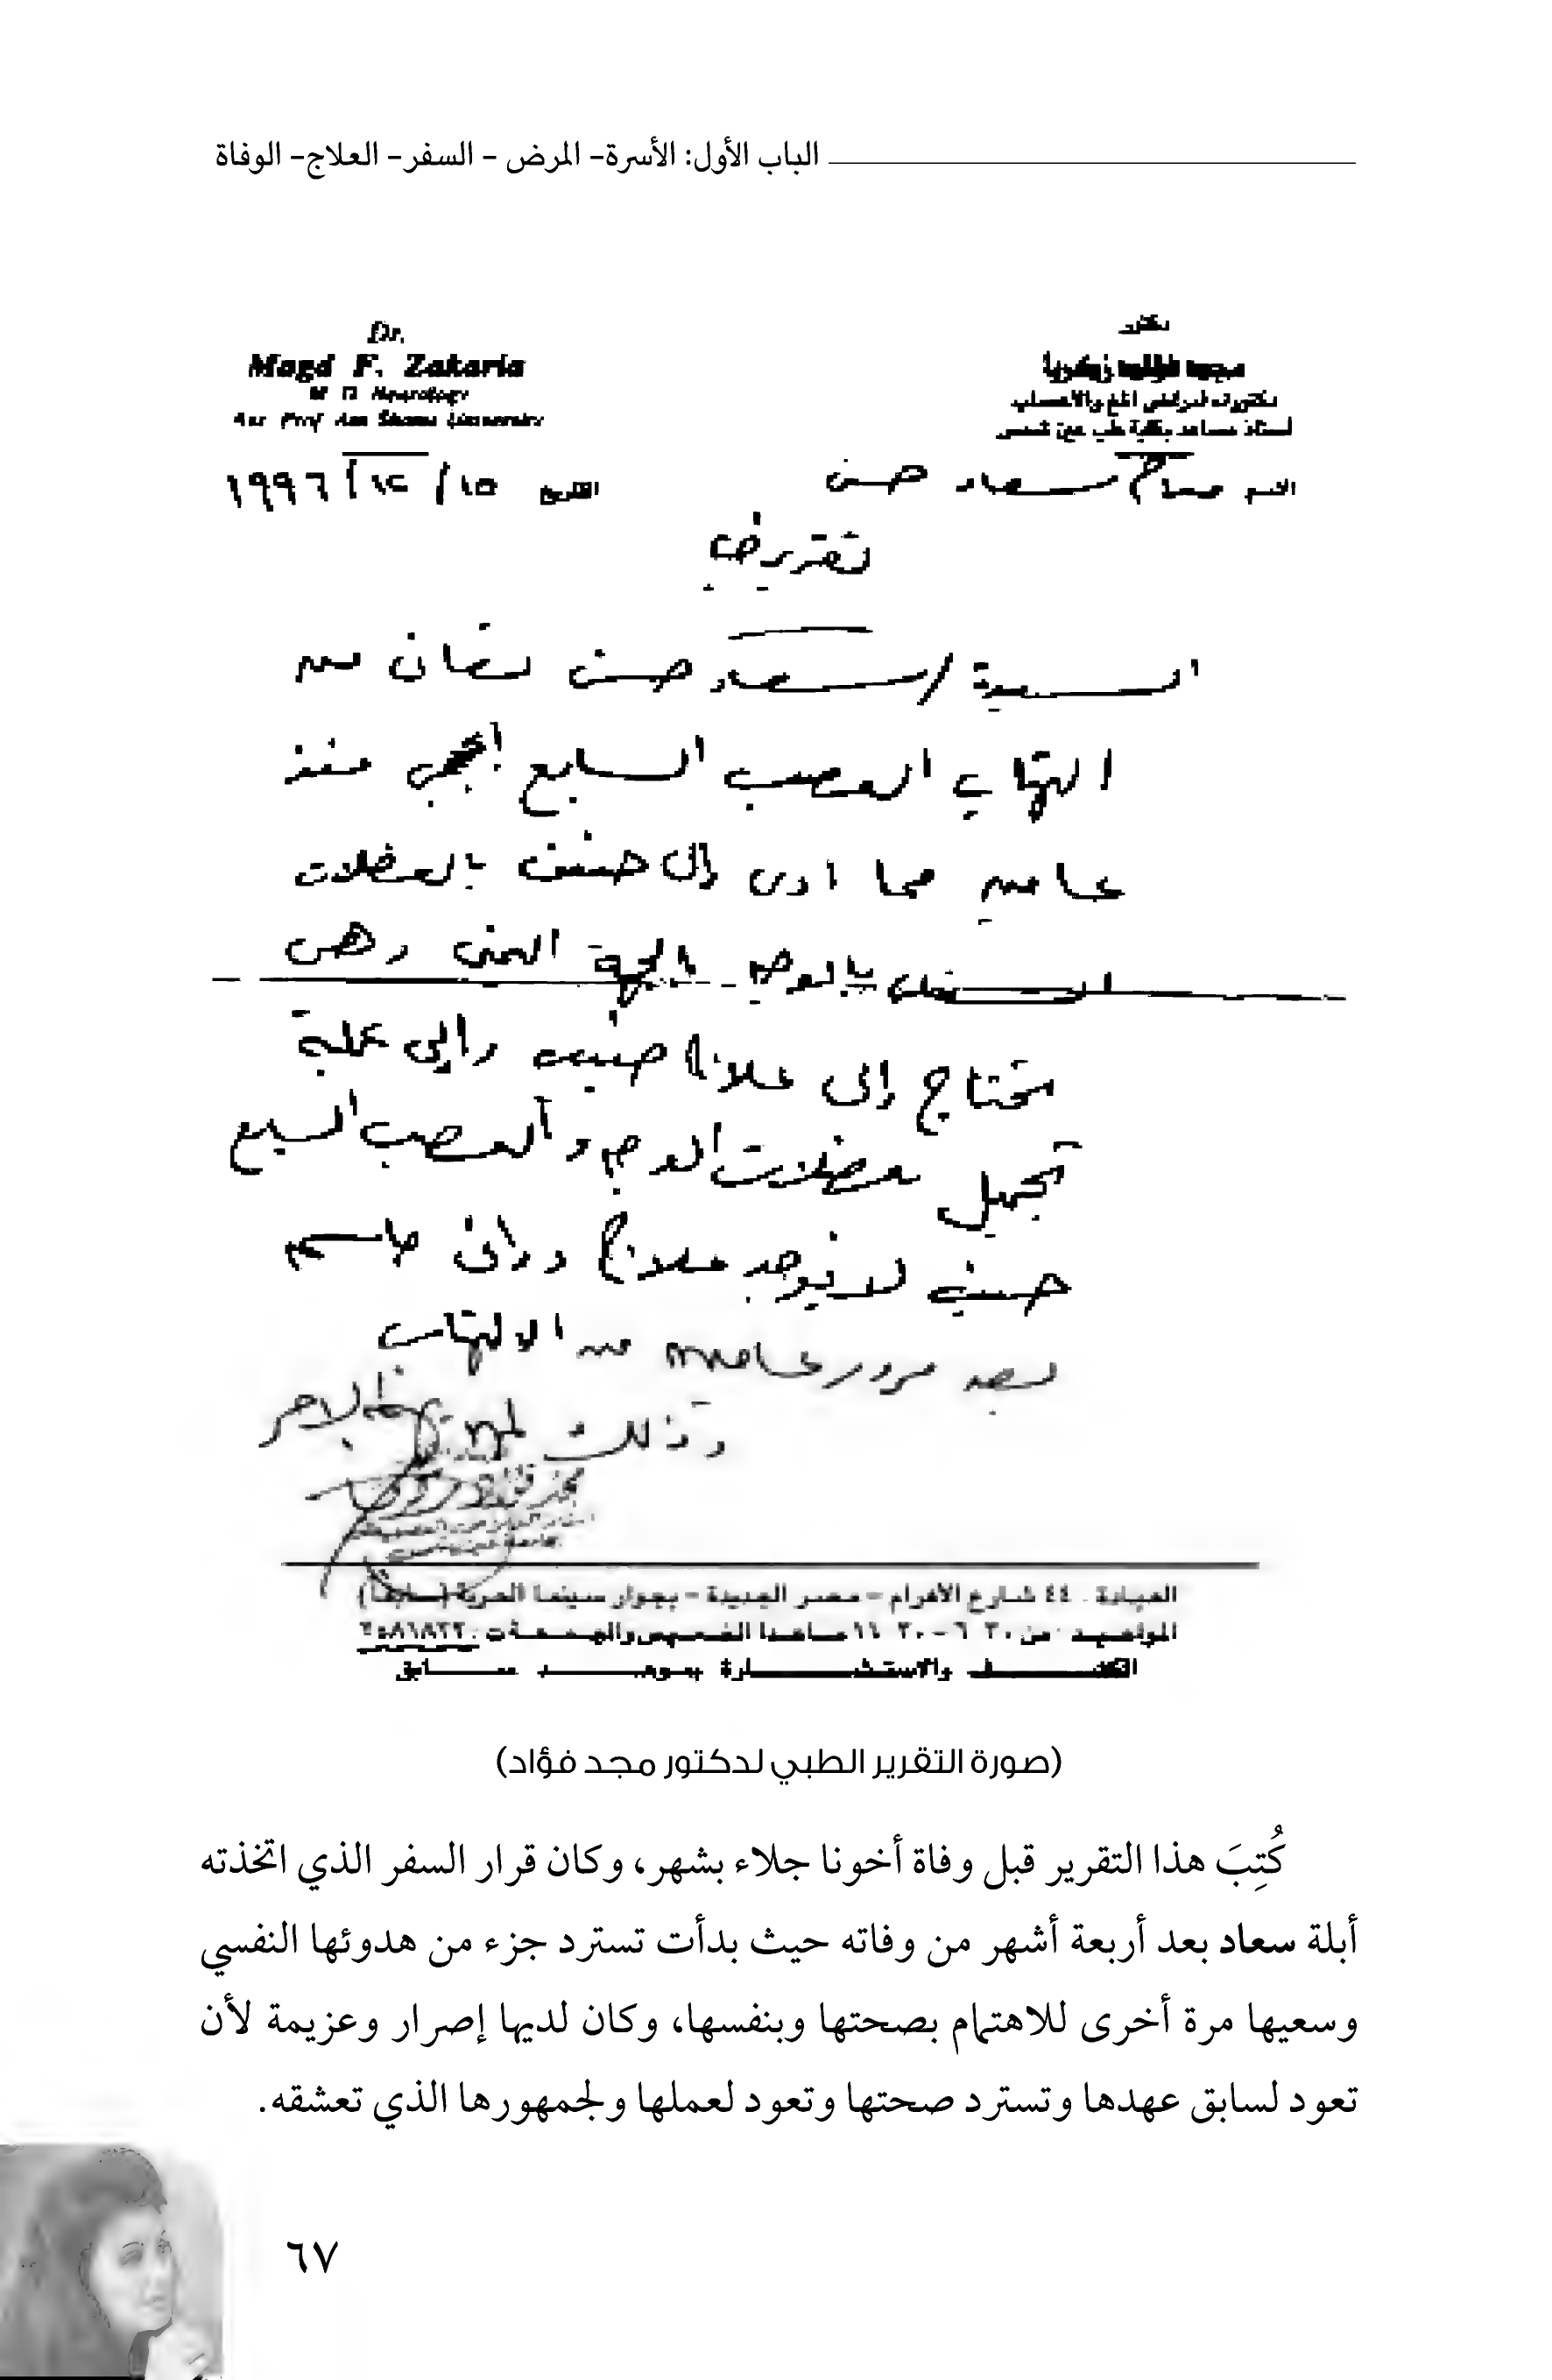 الباب الأول: الأسرة- المرض - السفر- العلاج- الوفاة
Dr.
Magd F. Zakaria
M D Neurology
Ass Prof Ain Shams University
دكتور
مجد فؤاد زكريا
دكتوراه أمراض المخ والأعصاب
أستاذ مساعد بكلية طب عين شمس
الاسم سعاد حسن
التاريخ ١٥/١٢/١٩٩٦
السيدة / سعاد حسن تعانى من
التهاب العصب السابع منذ
عامين مما ادى إلى بالعضلات
بالوجه الجهة اليمنى وهى
تحتاج إلى علاج وإلى عملية
تجميل عضلات الوجه والعصب السابع
حيث لا يوجد علاج دوائى حاسم
بعد مرور عامين من الالتهاب
العيادة - ٤٤ شارع الأهرام - مصر الجديدة - بجوار سينما الحرية (سابقاً)
المواعيد من ٦،٣٠ - ١١،٣٠ ماعدا الخميس والجمعة ت
الكشف والاستشارة بموعد سابق
(صورة التقرير الطبي لدكتور مجد فؤاد)
كُتِبَ هذا التقرير قبل وفاة أخونا جلاء بشهر، وكان قرار السفر الذي اتخذته
أبلة سعاد بعد أربعة أشهر من وفاته حيث بدأت تسترد جزء من هدوئها النفسي
وسعيها مرة أخرى للاهتمام بصحتها وبنفسها، وكان لديها إصرار وعزيمة لأن
تعود لسابق عهدها وتسترد صحتها وتعود لعملها ولجمهورها الذي تعشقه.
٦٧